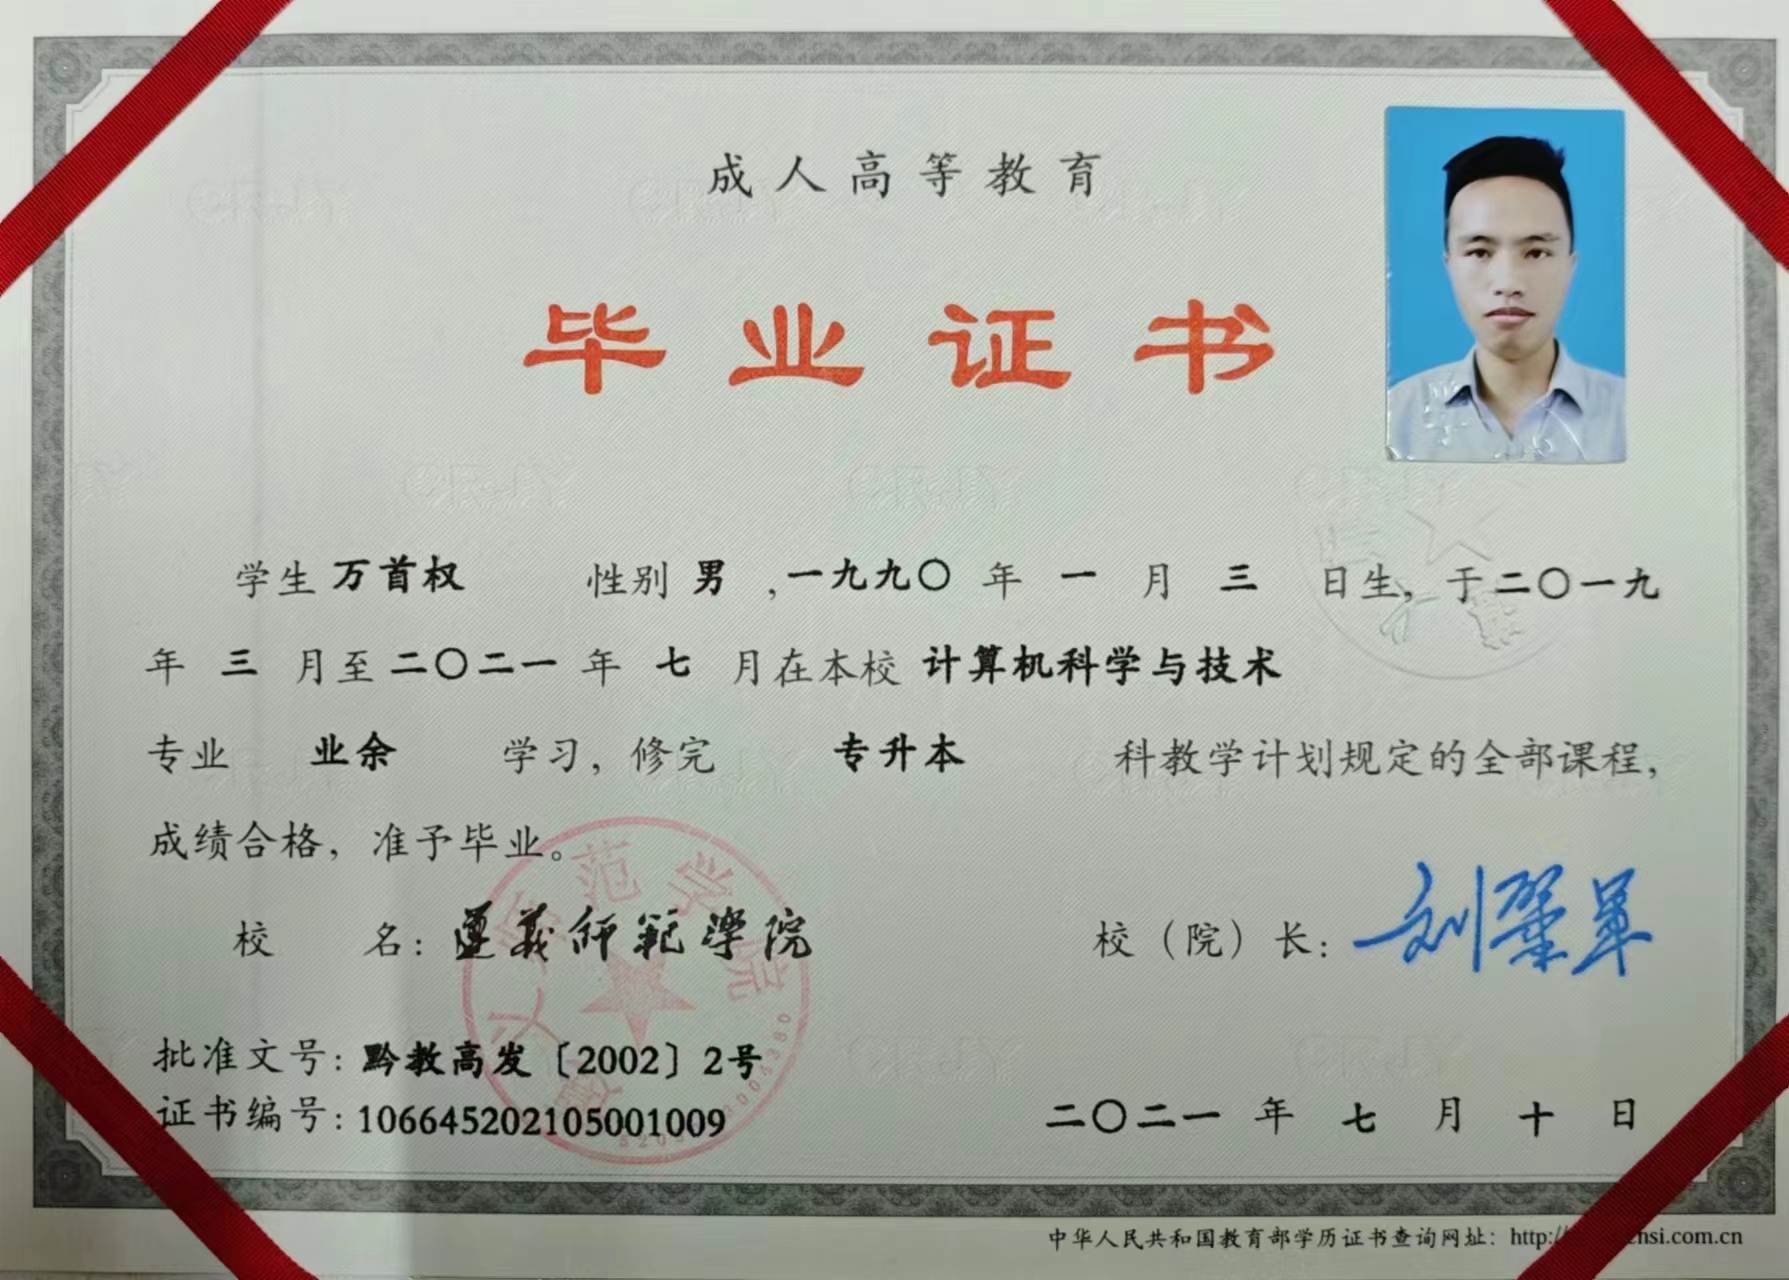 成人高等教育
毕业证书
学生 万首权 性别 男 ,一九九〇 年 一 月 三 日生, 于 二〇一九
年 三 月至 二〇二一 年 七 月在本校 计算机科学与技术
专业 业余 学习, 修完 专升本 科教学计划规定的全部课程,
成绩合格, 准予毕业。
校 名: 遵義师範學院 校（院）长: 刘肇军
批准文号: 黔教高发〔2002〕2号
证书编号: 106645202105001009
二〇二一 年 七 月 十 日
中华人民共和国教育部学历证书查询网址: http://
si.com.cn
遵义师范学院
CRJY